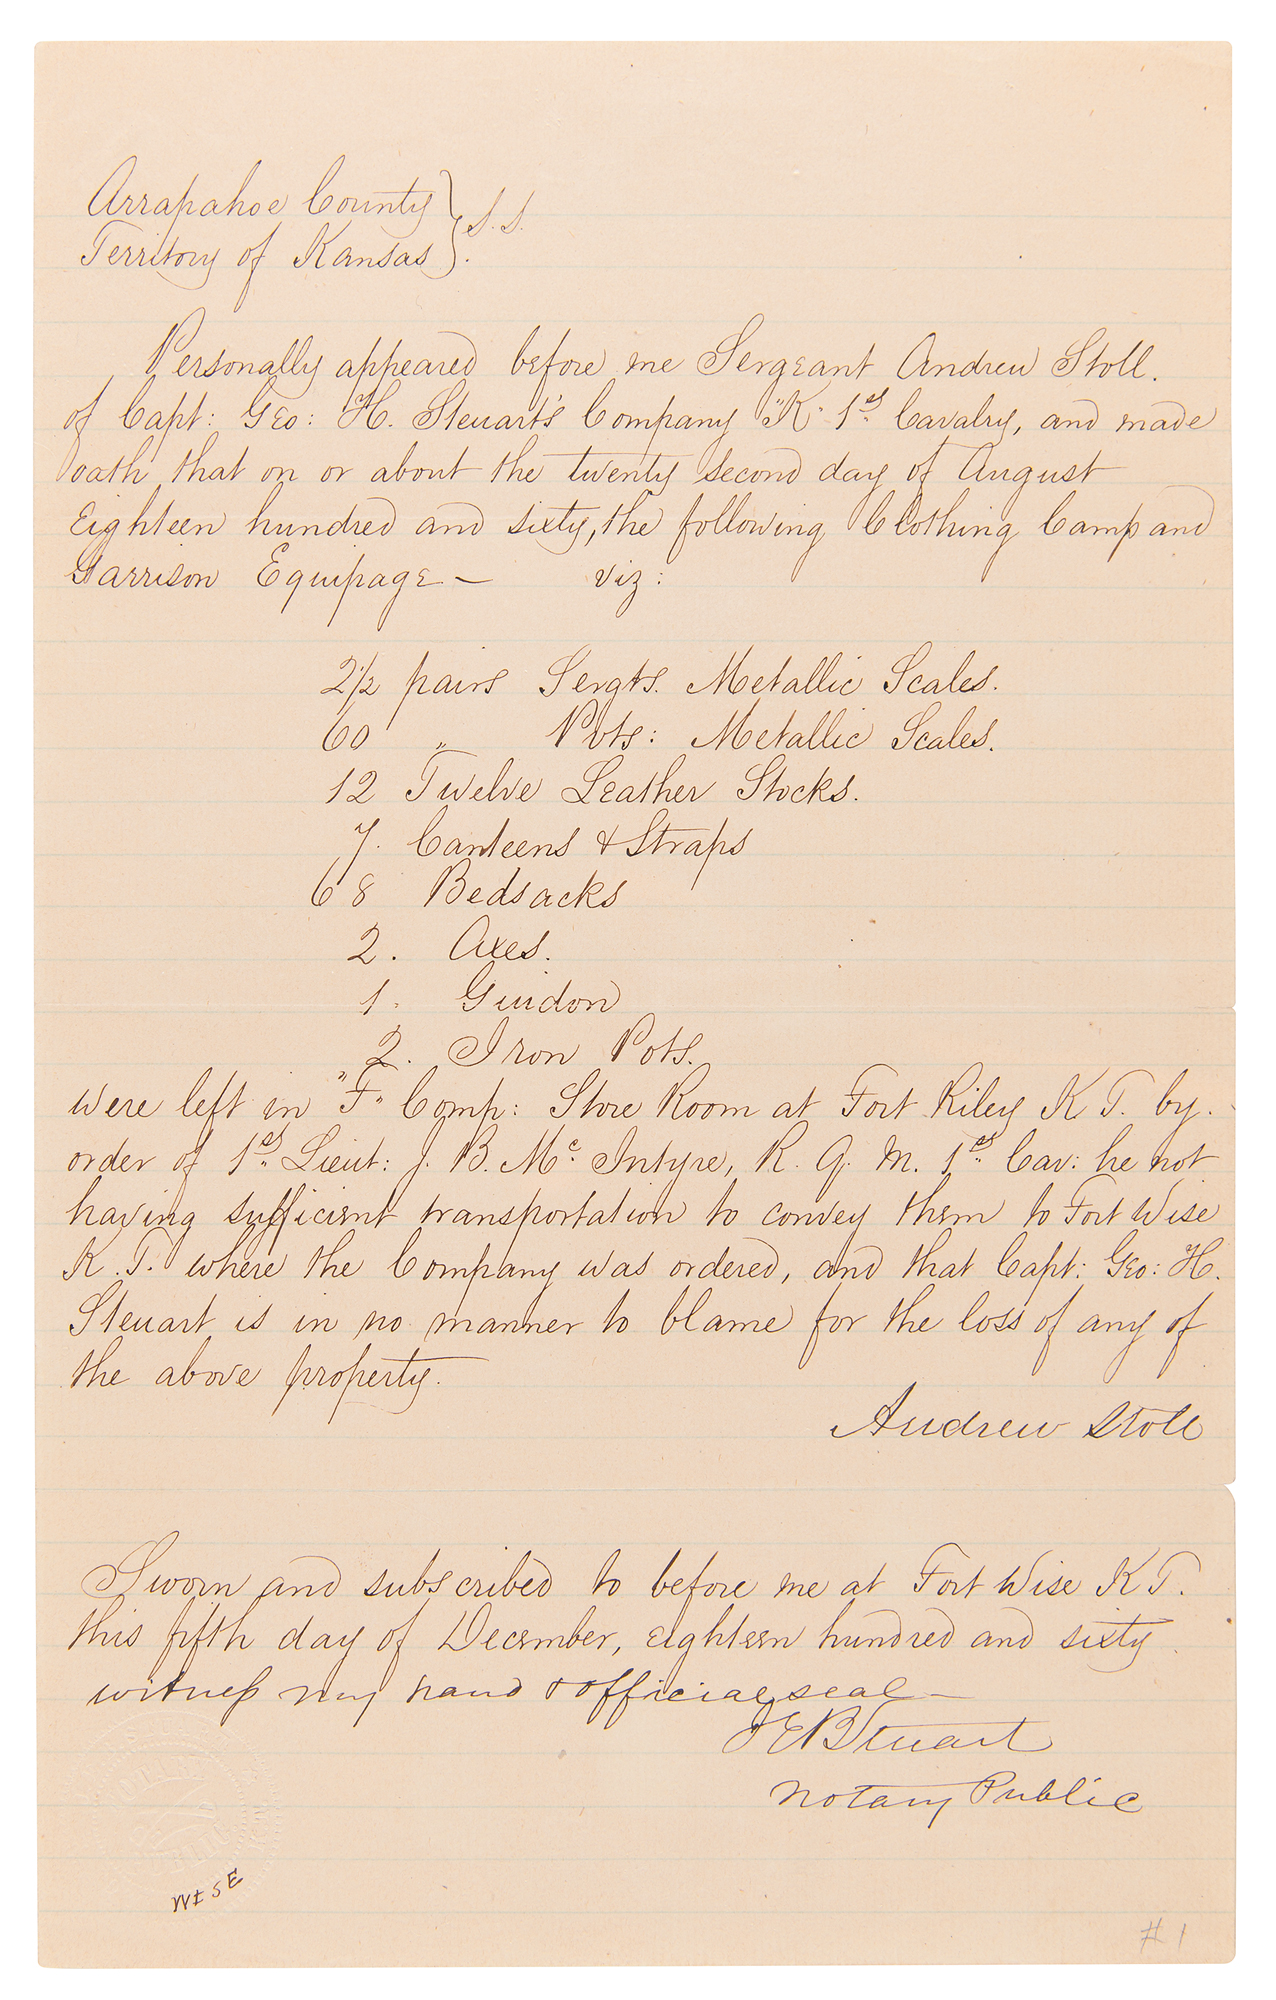 Arrapahoe County } S.S.
Territory of Kansas }
Personally appeared before me Sergeant Andrew Stoll.
of Capt: Geo: H. Steuart's Company "K" 1st Cavalry, and made
oath that on or about the twenty second day of August
Eighteen hundred and sixty, the following Clothing Camp and
Garrison Equipage — viz:
2½ pairs Sergts. Metallic Scales.
60 " Pvts: Metallic Scales.
12 Twelve Leather Stocks.
7. Canteens & Straps
68 Bedsacks
2. Axes.
1. Guidon
2. Iron Pots.
were left in "F" Comp: Store Room at Fort Riley K T. by
order of 1st Lieut: J. B. McIntyre, R. Q. M. 1st Cav: he not
having sufficient transportation to convey them to Fort Wise
K. T. where the Company was ordered, and that Capt: Geo: H.
Steuart is in no manner to blame for the loss of any of
the above property.
Andrew Stoll
Sworn and subscribed to before me at Fort Wise K T.
this fifth day of December, eighteen hundred and sixty
witness my hand & official seal —
J E B Stuart
Notary Public
WISE
# 1